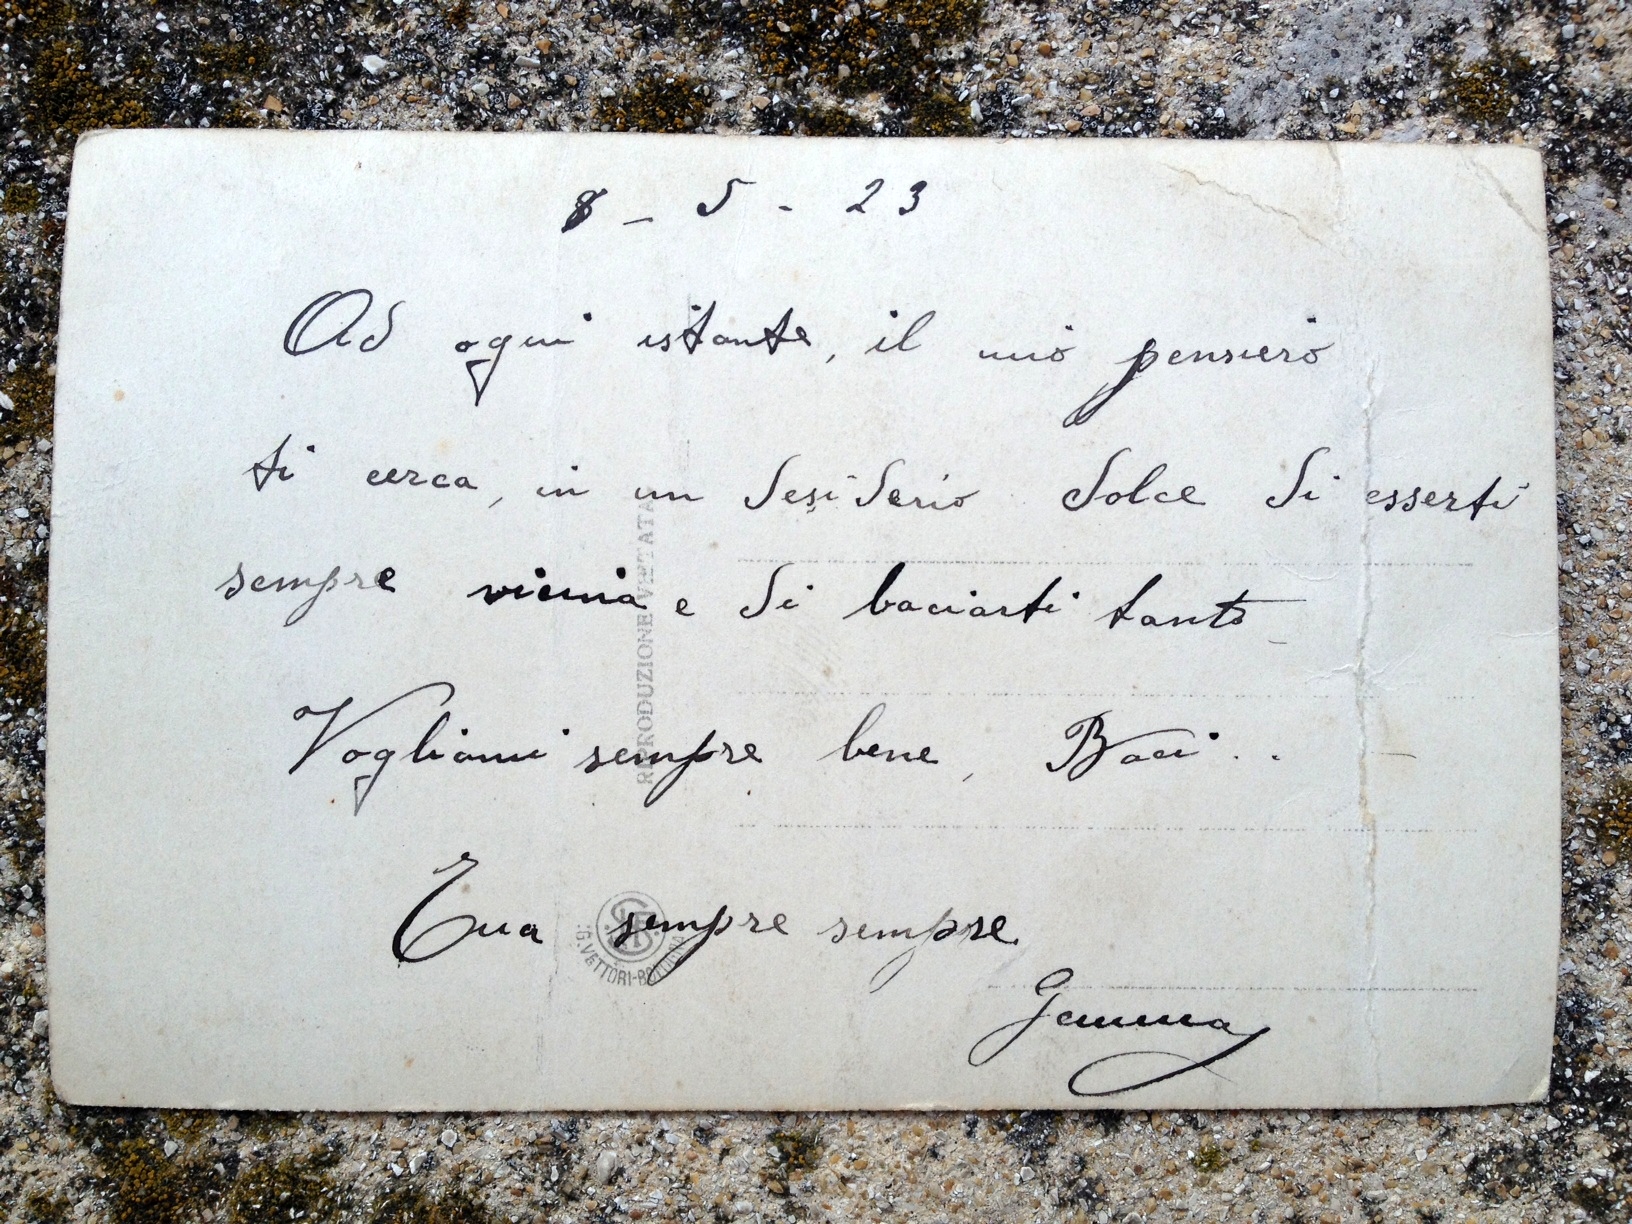 8 - 5 - 23
Ad ogni istante, il mio pensiero
ti cerca, in un desiderio dolce di esserti
sempre vicina e di baciarti tanto
Vogliami sempre bene, Baci . .
Tua sempre sempre
Gemma
RIPRODUZIONE VIETATA
G. VETTORI-BOLOGNA